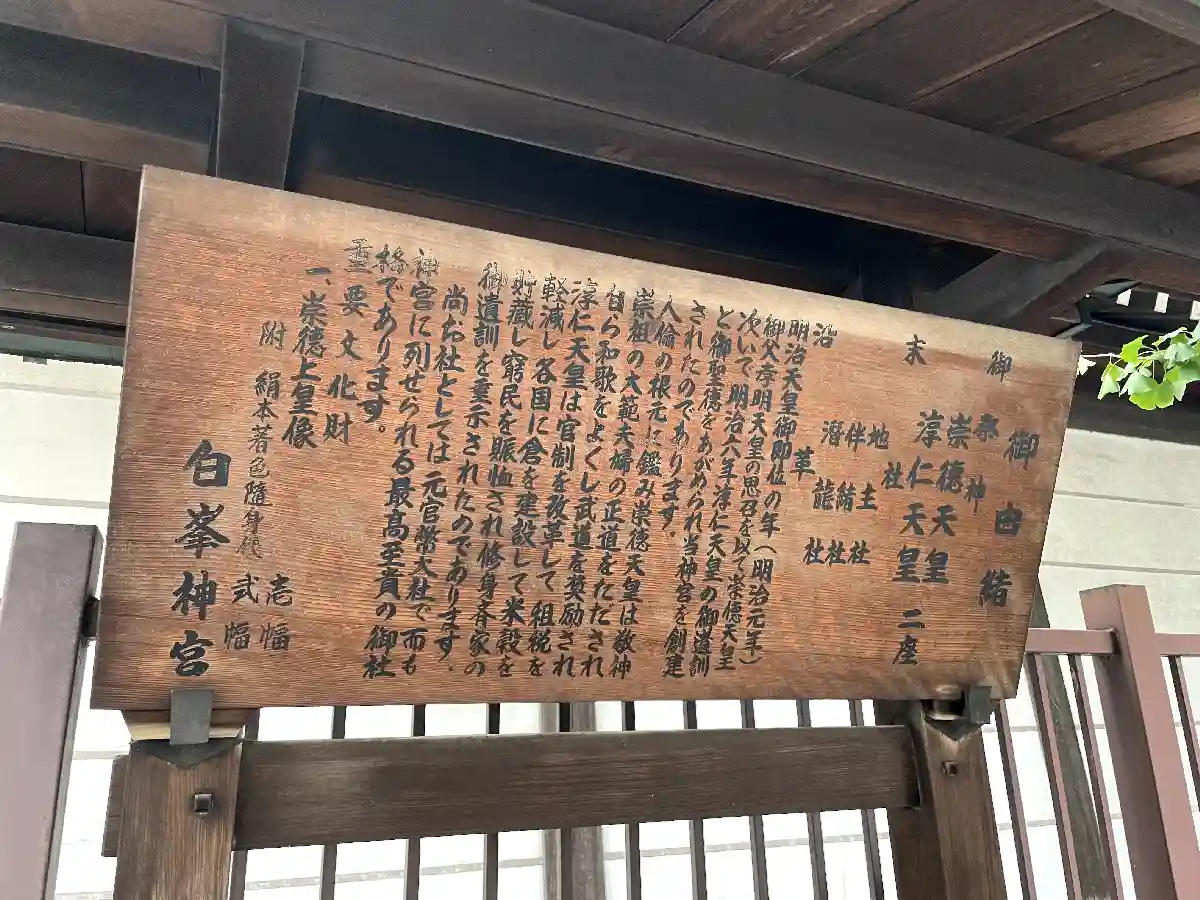 御由緒
御祭神
崇徳天皇
淳仁天皇 二座
末社
地主社
伴緒社
潛龍社
沿革
明治天皇御即位の年（明治元年）
御父孝明天皇の思召を以て崇徳天皇
次いで明治六年淳仁天皇の御遺訓
と御聖徳をあがめられ当神宮を創建
されたのであります。
人倫の根元に鑑み崇徳天皇は敬神
崇祖の大範夫婦の正道をただされ
自ら和歌をよくし武道を奨励され
淳仁天皇は官制を改革して租税を
軽減し各国に倉を建設して米穀を
貯蔵し窮民を賑恤され修身斉家の
御遺訓を垂示されたのであります.
尚お社としては元官幣大社で而も
神宮に列せられる最高至貴の御社
格であります。
重要文化財
一、崇徳上皇像 壱幅
附 絹本著色隨身像 弐幅
白峯神宮